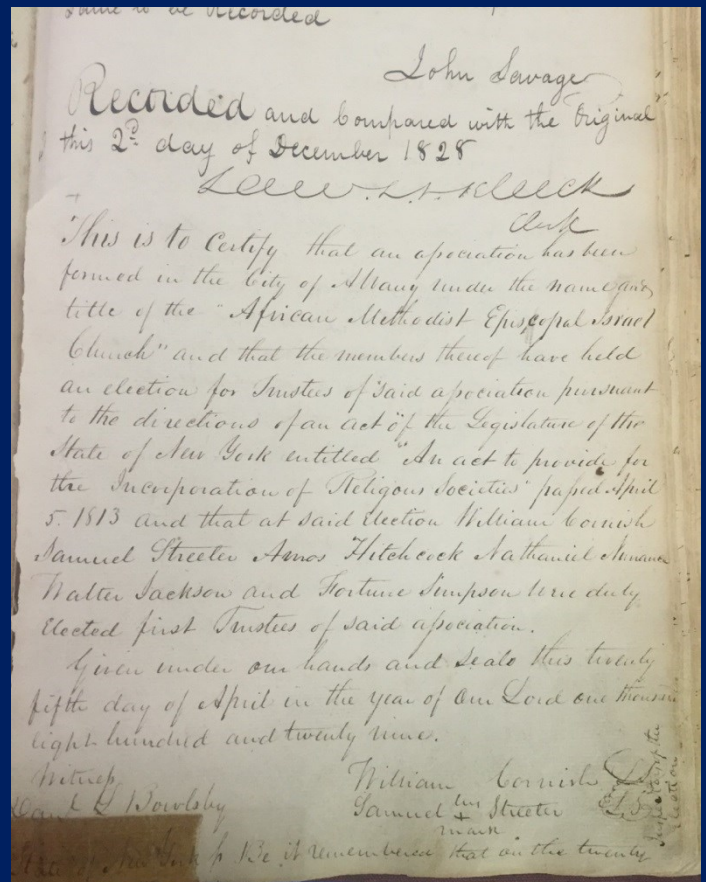 same to be Recorded
John Savage
Recorded and Compared with the Original
this 2d day of December 1828
Clerk
This is to Certify that an association has been
formed in the City of Albany under the name and
title of the "African Methodist Episcopal Israel
Church" and that the members thereof have held
an election for Trustees of said association pursuant
to the directions of an act of the Legislature of the
State of New York entitled "An act to provide for
the Incorporation of Religous Societies" passed April
5. 1813 and that at said Election William Cornish
Samuel Streeter Amos Hitchcock Nathaniel
Walter Jackson and Fortune Simpson were duly
Elected first Trustees of said association.
Given under our hands and seals this twenty
fifth day of April in the year of Our Lord one thousan
eight hundred and twenty nine.
Witness William Cornish LS
L Bowlsby Samuel his + mark Streeter LS
Inspectors of the Election
State of New York ss Be it remembered that on the twenty